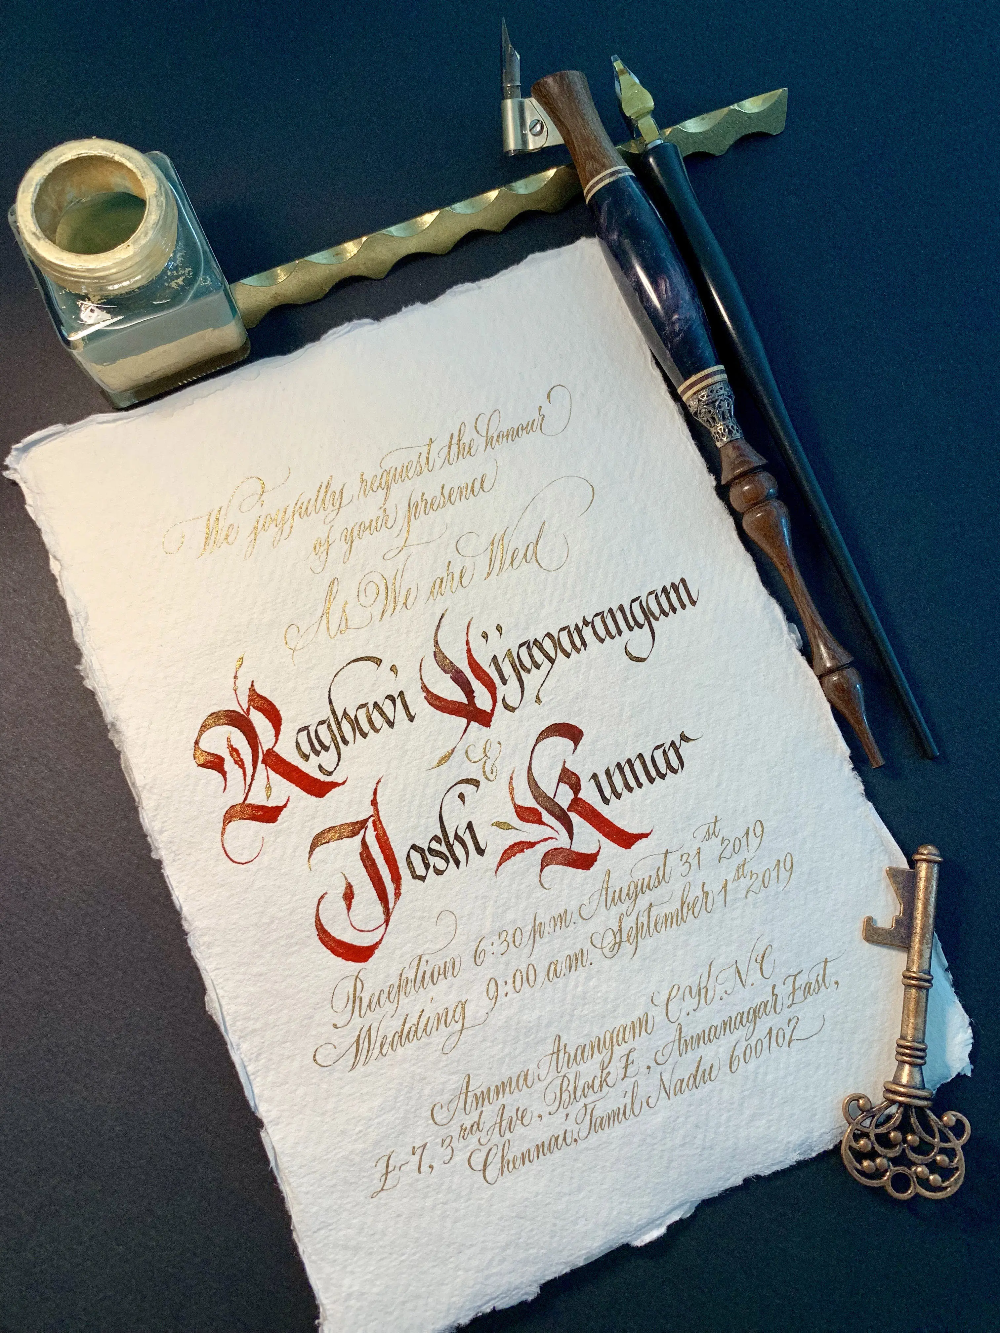 We joyfully request the honour
of your presence
As We are Wed
Raghavi Vijayarangam
&
Joshi Kumar
Reception 6:30 p.m. August 31st 2019
Wedding 9:00 a.m. September 1st 2019
Amma Arangam C.K.N.C
Z-7, 3rd Ave, Block E, Annanagar East,
Chennai, Tamil Nadu 600102